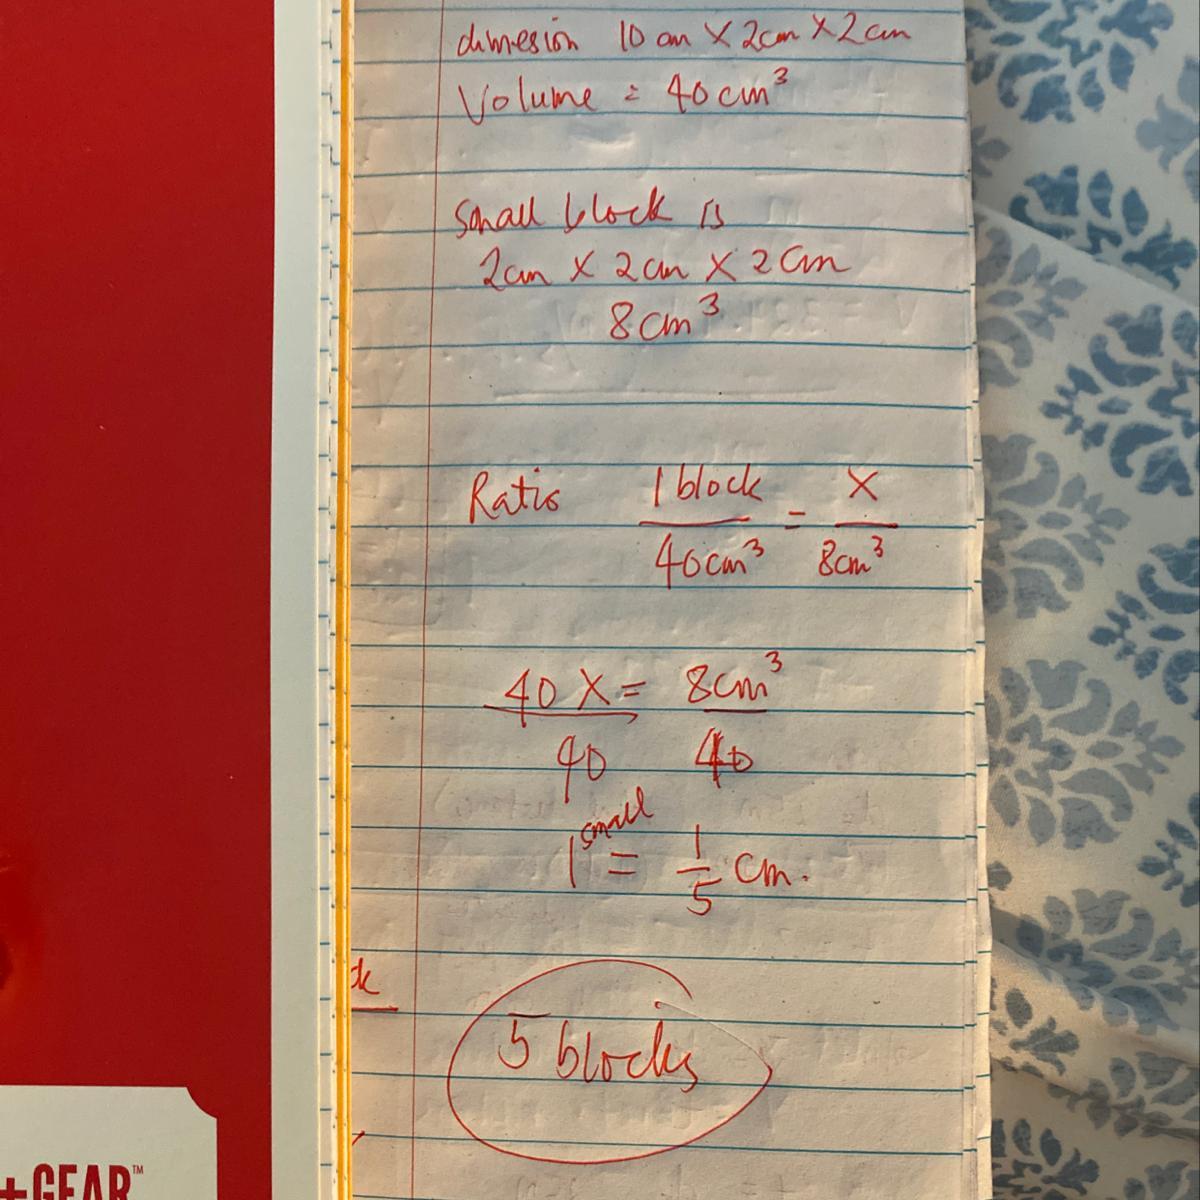 dimesion 10 cm X 2cm X 2cm
Volume = 40cm³
Small block is
2cm X 2cm X 2cm
8cm³
Ratio 1 block = X
40cm³ 8cm³
40 X = 8cm³
40 40
1 small = 1/5 cm.
5 blocks
+GEAR™